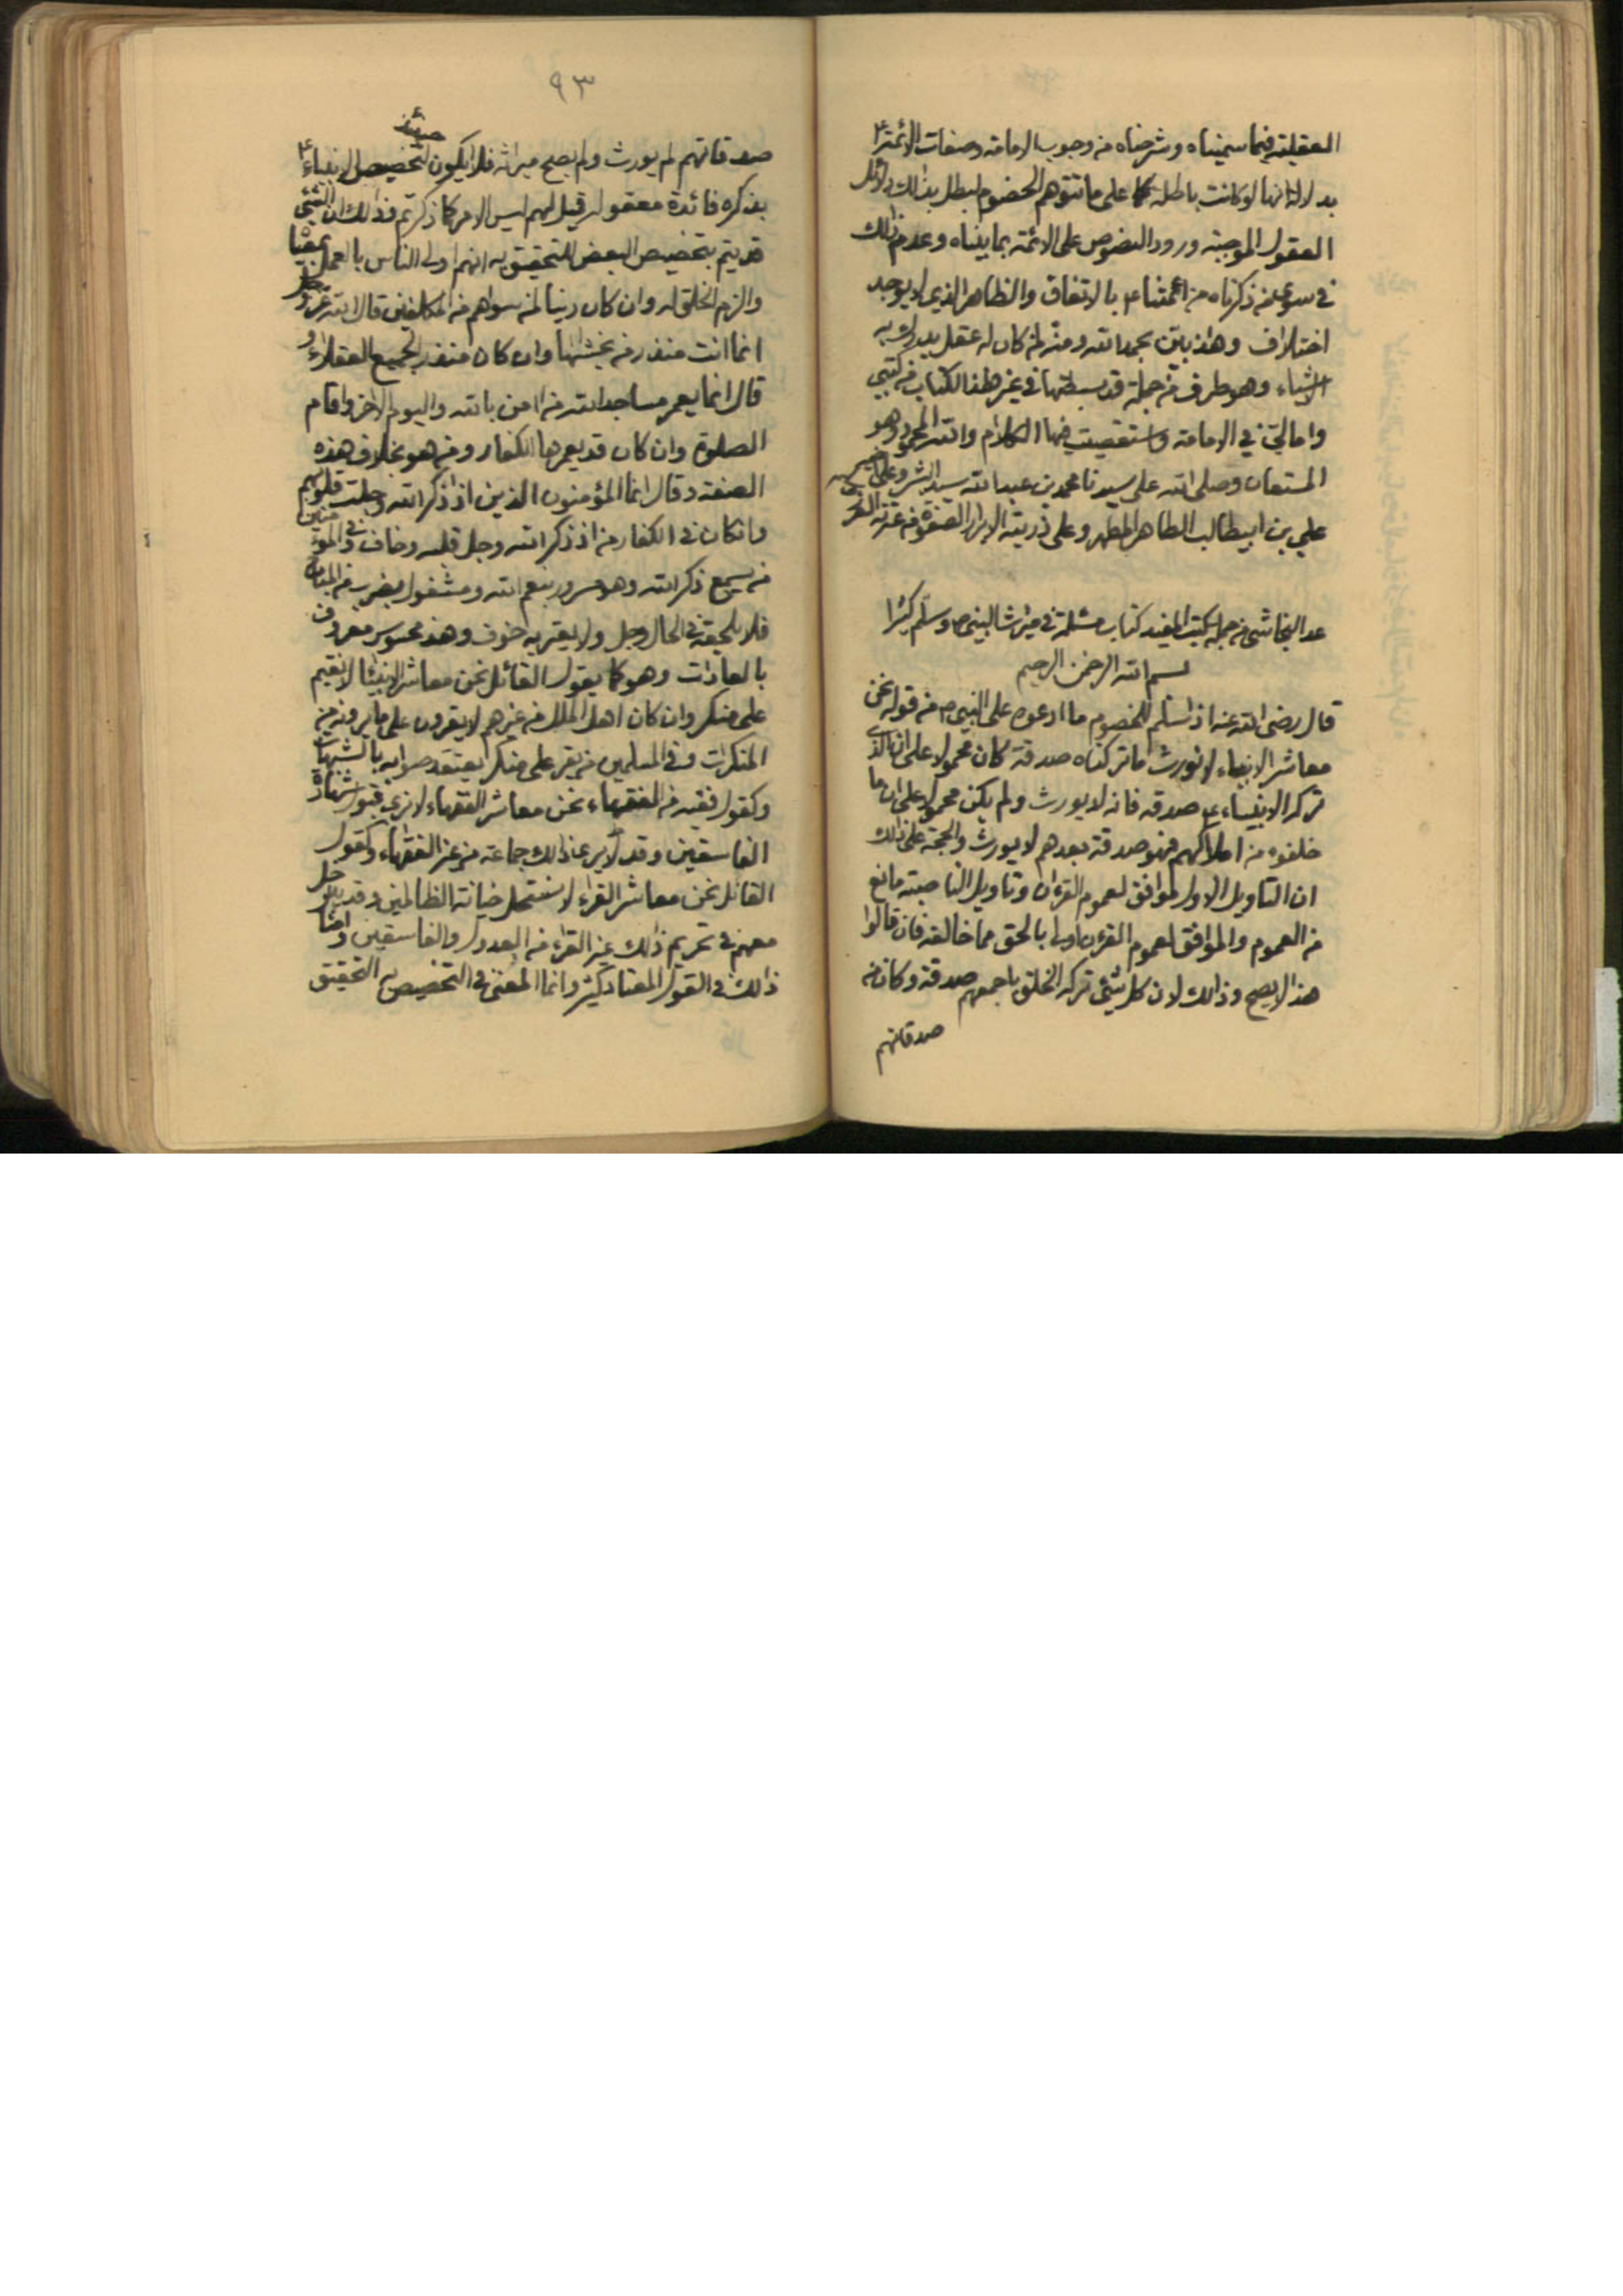 العقلية فيما سميناه وشرحناه من وجوب الامامة وصفات الائمة ع
بدلالة انها لو كانت باطلة على ما تتوهم الخصوم لبطل بذالك دلائل
العقول الموجبة ورود النصوص على الائمة بما بيناه وعدم ذالك
في سوى من ذكرناه من ائمتنا ع بالاتفاق والظاهر الذي لا يوجد
اختلاف وهذا بين بحمد الله ومنه لمن كان له عقل يدرك به
الاشياء وهو طرف من جملة قد بسطتها في غير هذا الكتاب من كتبي
وامالي في الامامة واستقصيت فيها الكلام والله المحمود وهو
المستعان وصلى الله على سيدنا محمد بن عبد الله سيد البشر وعلى
علي بن ابيطالب الطاهر المطهر وعلى ذريته الابرار الصفوة من عترته الغرر
عد النجاشي من جملة كتب المفيد كتاب مسئلة في ميراث النبي ص وسلم كثيرا
بسم الله الرحمن الرحيم
قال رضى الله عنه اذا سلم للخصوم ما ادعوه على النبي ص من قوله نحن
معاشر الانبياء لا نورث ما تركناه صدقة كان محمولا على ان الذي
تركه الانبياء ع صدقه فانه لا يورث ولم يكن محمولا على ان ما
خلفوه من املاكهم فهو صدقة بعدهم لا يورث والحجة على ذالك
ان التاويل الاول موافق لعموم القرءان وتاويل الناصبة مانع
من العموم والموافق لعموم القرءن اولى بالحق مما خالفه فان قالوا
هذا لا يصح وذالك لان كل شئ تركه الخلق باجمعهم صدقة وكان من
صدقاتهم
٩٣
صدقاتهم لم يورث ولم يصح ميراثه فلا يكون حينئذ لتخصيص الانبياء ع
بذكره فائدة معقولة قيل لهم ليس الامر كما ذكرتم وذالك ان الشئ
قد يتم بتخصيص البعض للتحقيق به انهم اولى الناس بالعمل بمعناه
والزم الخلق له وان كان دينا لمن سواهم من المكلفين قال الله عز وجل
انما انت منذر من يخشاها وان كان منذر الجميع العقلاء و
قال انما يعمر مساجد الله من امن بالله واليوم الاخر واقام
الصلوة وان كان قد يعمرها الكفار ومن هو بخلاف هذه
الصفة وقال انما المؤمنون الذين اذا ذكر الله وجلت قلوبهم
وان كان في الكفار من اذ ذكر الله وجل قلبه وخاف وفي المؤمنين
من يسمع ذكر الله وهو مسرور بنعم الله ومشغول بضرب من المباح
فلا يلحقه في الحال وجل ولا يعتريه خوف وهذا محسوس معروف
بالعادات وهو كما يقول القائل نحن معاشر الانبياء لا نقيم
على منكر وان كان اهل الملل من غيرهم لا يقرون على ما يرونه من
المنكرات وفي المسلمين من يقر على منكر يعتقد صوابه بالشبهات
وكقول فقيه من الفقهاء نحن معاشر الفقهاء لا نرى قبول شهادة
الفاسقين وقد لا يرى ذالك جماعة من غير الفقهاء وكقول
القائل نحن معاشر القراء لا نستحل خيانة الظالمين وقد يدخل
معهم في تحريم ذالك غير القراء من العدول والفاسقين وامثال
ذالك في القول المعتاد كثير وانما المعنى في التخصيص به التحقيق